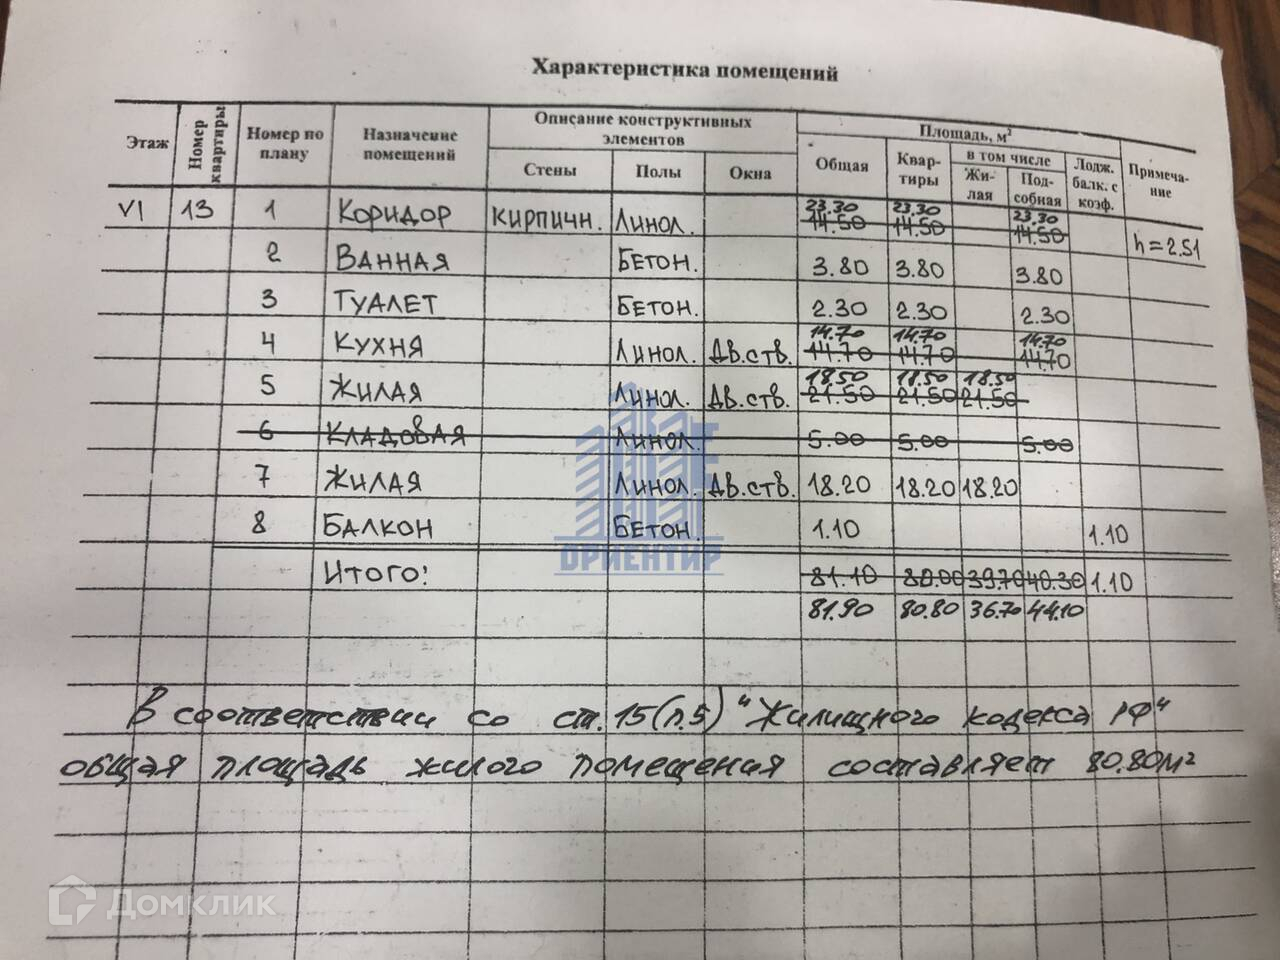 Характеристика помещений
Этаж Номер квартиры Номер по плану Назначение помещений Описание конструктивных элементов Стены Полы Окна Площадь, м² Общая Квартиры в том числе Жилая Подсобная Лодж. балк. с коэф. Примечание
VI 13 1 Коридор кирпичн. Линол. 23.30 14.50 23.30 14.50 23.30 14.50 h=2.51
2 Ванная Бетон. 3.80 3.80 3.80
3 Туалет Бетон. 2.30 2.30 2.30
4 Кухня Линол. Дв.ств. 14.70 14.70 14.70 14.70 14.70 14.70
5 Жилая Линол. Дв.ств. 18.50 21.50 18.50 21.50 18.50 21.50
6 Кладовая Линол. 5.00 5.00 5.00
7 Жилая Линол. Дв.ств. 18.20 18.20 18.20
8 Балкон Бетон. 1.10 1.10
Итого: 81.10 80.00 39.70 40.30 1.10
81.90 80.80 36.70 44.10
В соответствии со ст.15(п.5) "Жилищного кодекса РФ"
общая площадь жилого помещения составляет 80.80м²
ОРИЕНТИР
Домклик